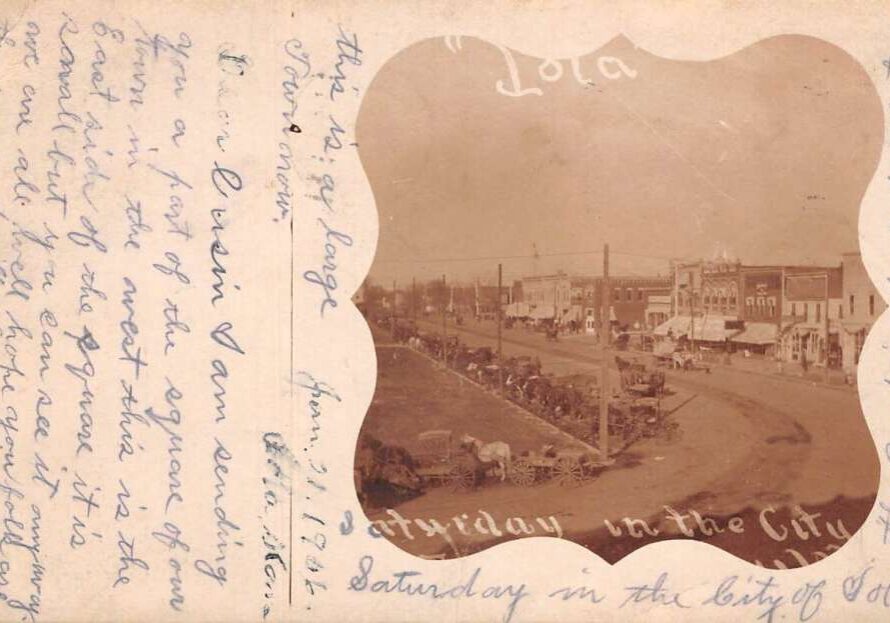 this is a large
Town now.
Jan. 21. 1906.
Iola, Kans
Dear Cusin I am sending
you a part of the square of our
town in the west this is the
East side of the square it is
small but you can see it anyway.
we are all well hope you folks are
"Iola
Saturday in the City
Saturday in the City of Io